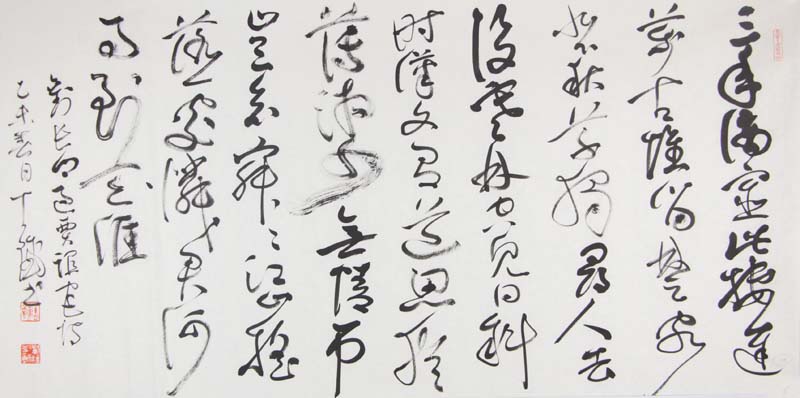 三年謫宦此棲遲
萬古惟留楚客
悲秋草獨尋人去
後寒林空見日斜
時漢文有道恩猶
薄湘水無情吊
豈知寂寂江山搖
落處憐君何
事到天涯
劉長卿過賈誼宅詩
乙未春月十書